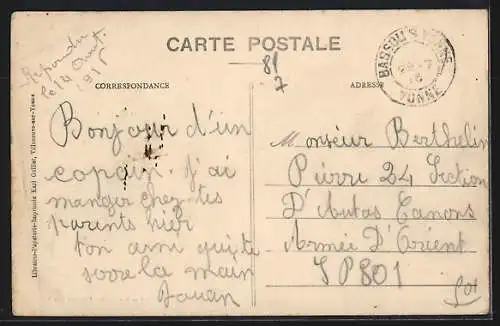 Répondu
le 14 Aout
1916
CARTE POSTALE
81
7
BASSOU
YONNE
CORRESPONDANCE
ADRESSE
Bonjour d'un
copain. j'ai
manger chez tes
parents hier
ton ami qui te
serre la main
Monsieur Berthelin
Pierre 24 Section
D'Autos Canons
Armée D'Orient
SP 801
Librairie-Papeterie-Imprimerie Karl Guillot, Villeneuve-sur-Yonne